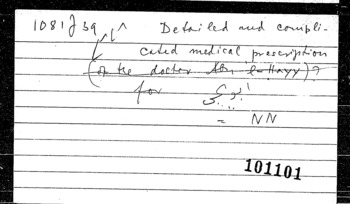 1081 J 39 Detailed and compli-
cated medical prescription
(of the doctor Abu l-Hayy)?
for
= NN
101101